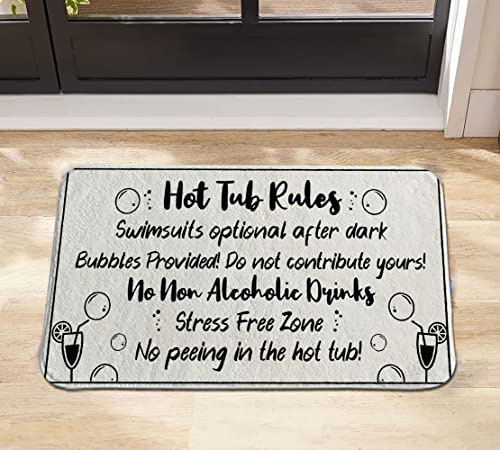 Hot Tub Rules
Swimsuits optional after dark
Bubbles Provided! Do not contribute yours!
No Non Alcoholic Drinks
Stress Free Zone
No peeing in the hot tub!